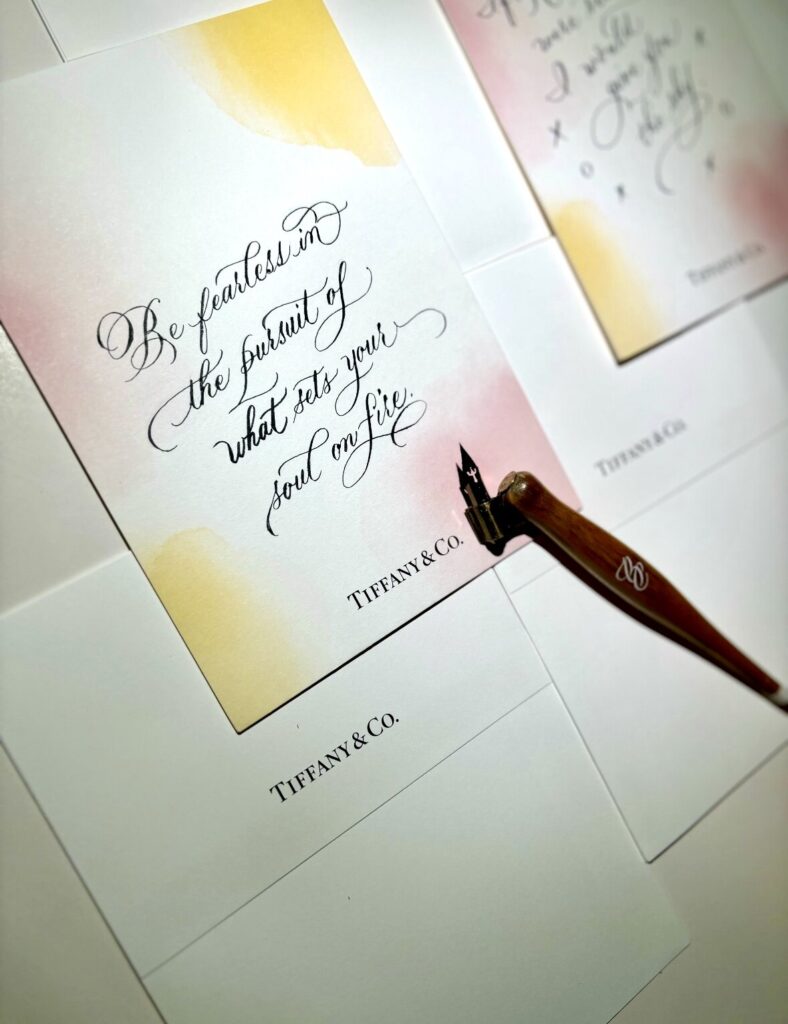 Be fearless in
the pursuit of
what sets your
soul on fire.
TIFFANY & CO.
TIFFANY & CO.
I would
give you
the sky.
x o x x o x
TIFFANY & CO.
TIFFANY & CO.